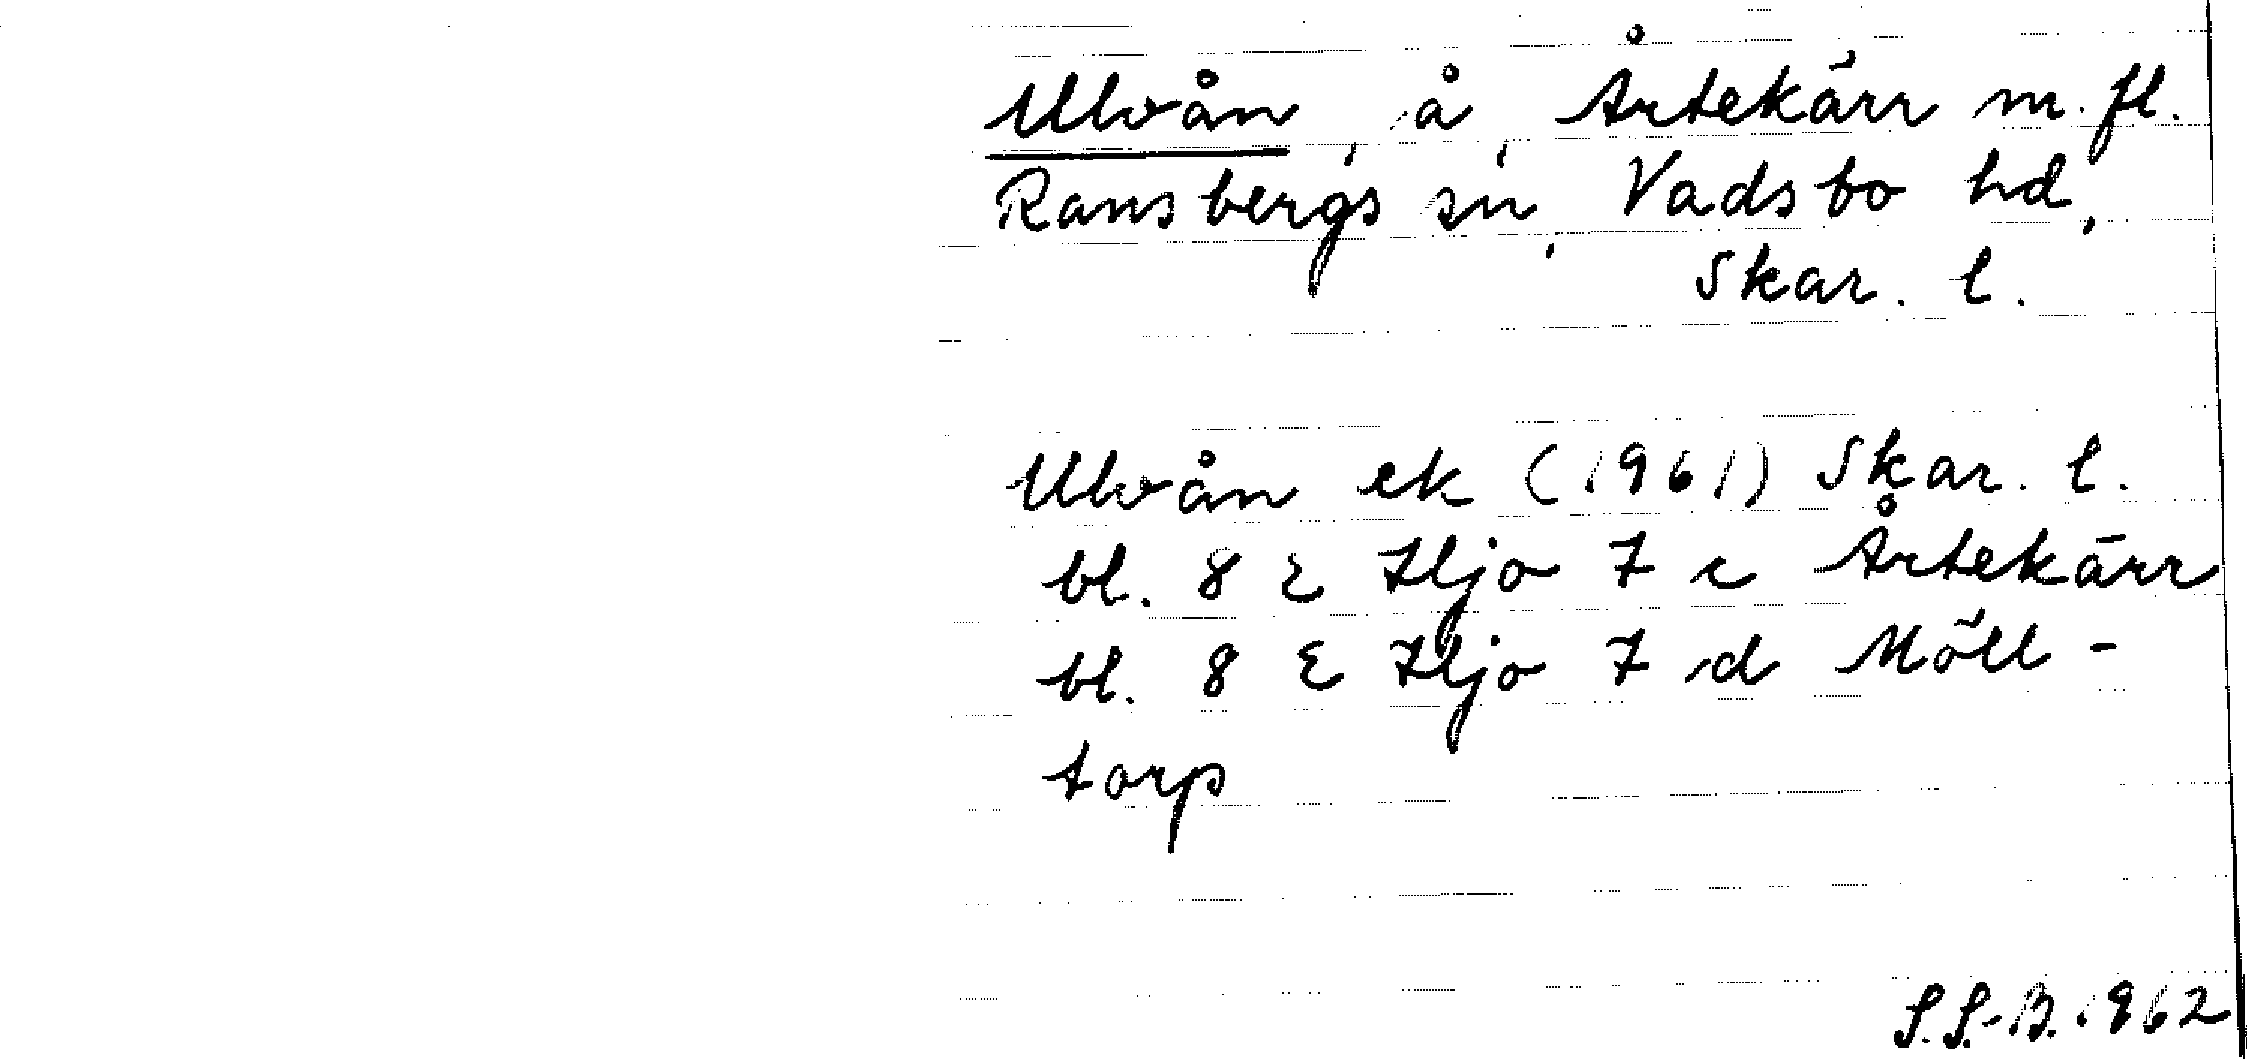 Ulvån, å, Årtekärr m.fl.
Ransbergs sn, Vadsbo hd,
Skar. l.
Ulvån ek (1961) Skar. l.
bl. 8 E Hjo 7 c Årtekärr
bl. 8 E Hjo 7 d Möll-
torp
S.S-B. 1962